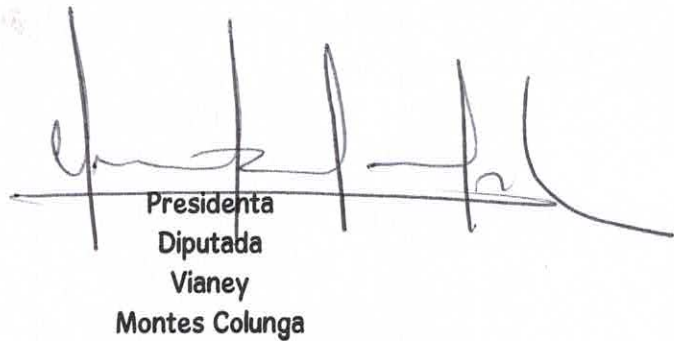 Presidenta
Diputada
Vianey
Montes Colunga